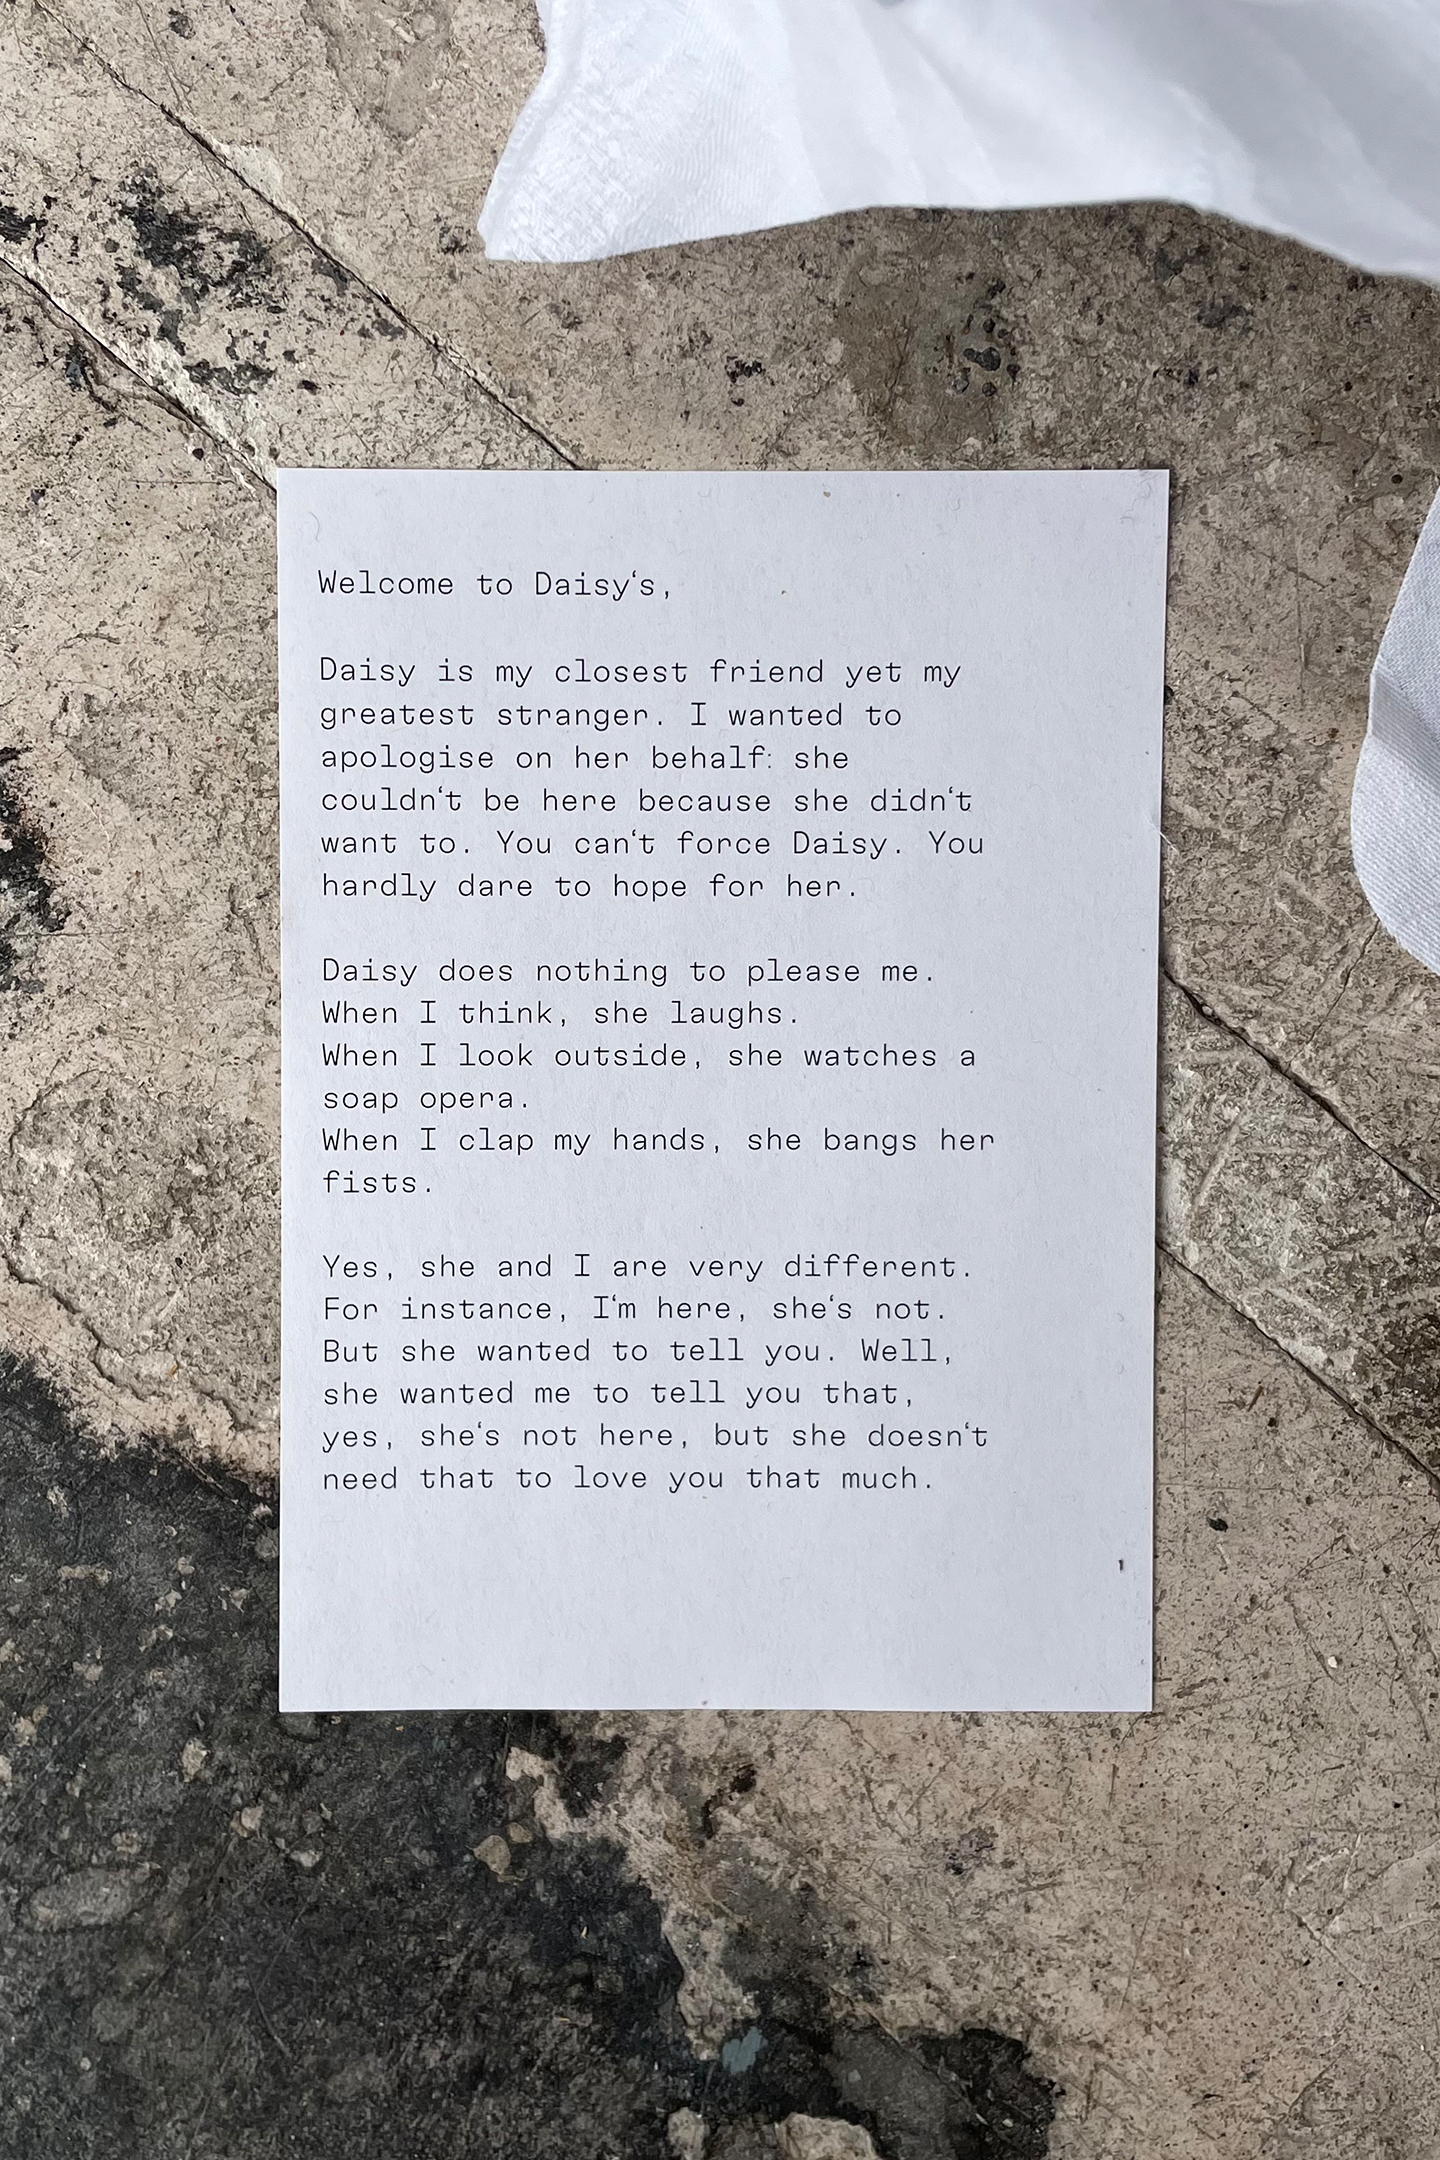 Welcome to Daisy‘s,
Daisy is my closest friend yet my
greatest stranger. I wanted to
apologise on her behalf: she
couldn‘t be here because she didn‘t
want to. You can‘t force Daisy. You
hardly dare to hope for her.
Daisy does nothing to please me.
When I think, she laughs.
When I look outside, she watches a
soap opera.
When I clap my hands, she bangs her
fists.
Yes, she and I are very different.
For instance, I‘m here, she‘s not.
But she wanted to tell you. Well,
she wanted me to tell you that,
yes, she‘s not here, but she doesn‘t
need that to love you that much.